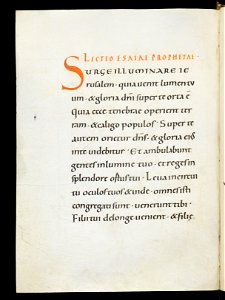 LECTIO ESAIAE PROPHETAE·
SURGE ILLUMINARE IE
rusalem· quia uenit lumen tu
um· & gloria dñi super te orta ē·
Quia ecce tenebrae operient ter
ram· & caligo populos· Super te
autem orietur dñs· & gloria eius
in te uidebitur· Et ambulabunt
gentes in lumine tuo· et reges in
splendore ortus tui· Leua in circui
tu oculos tuos & uide· omnes isti
congregati sunt· uenerunt tibi·
Filii tui de longe uenient· & filię